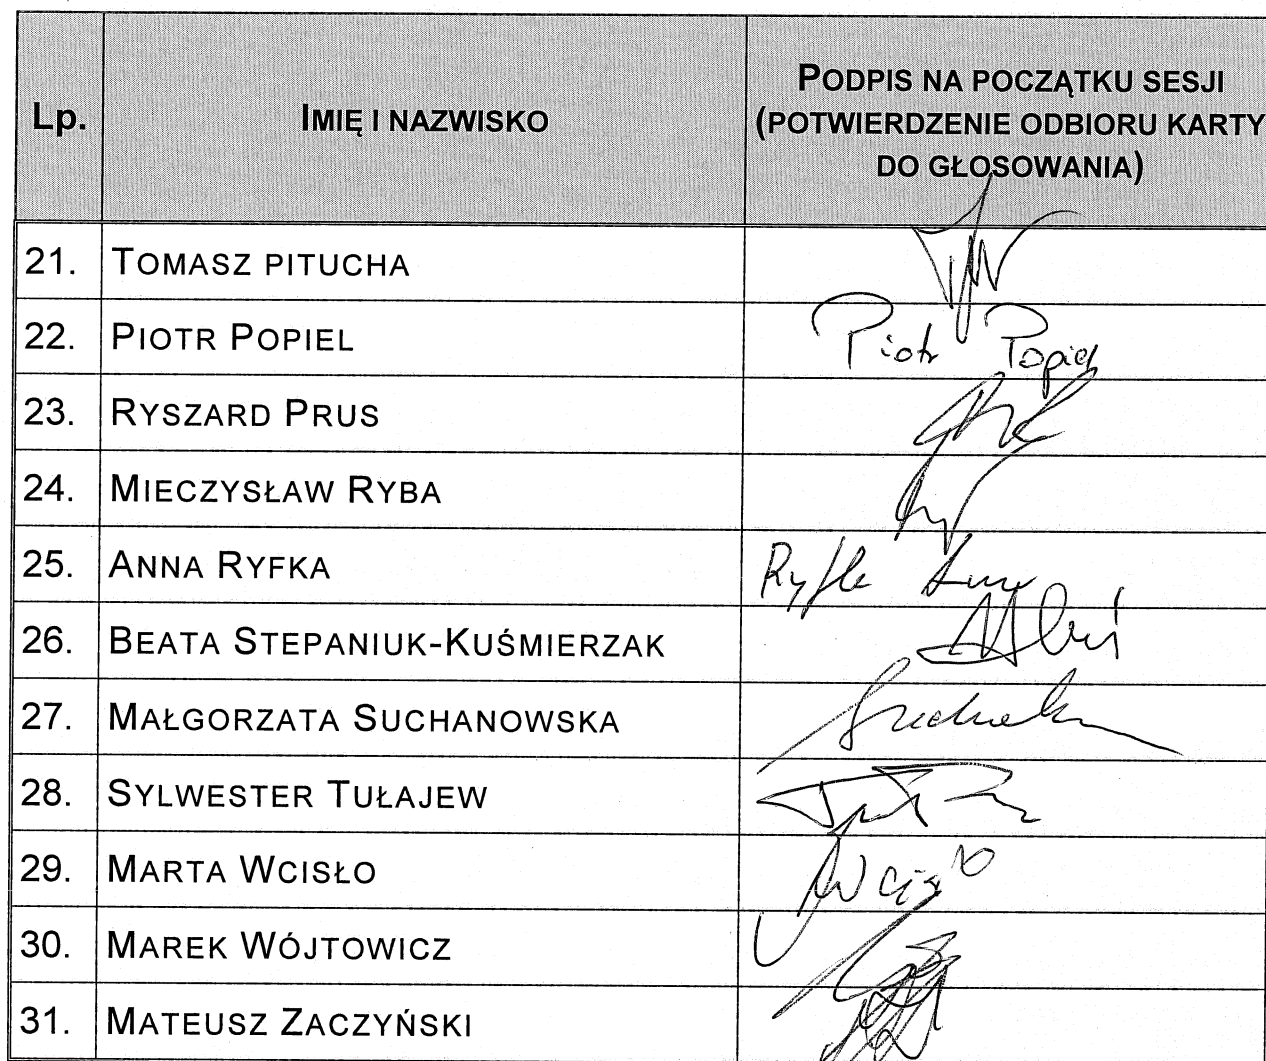 Lp.
IMIĘ I NAZWISKO
PODPIS NA POCZĄTKU SESJI
(POTWIERDZENIE ODBIORU KARTY
DO GŁOSOWANIA)
21. TOMASZ PITUCHA
22. PIOTR POPIEL Piotr Popiel
23. RYSZARD PRUS
24. MIECZYSŁAW RYBA
25. ANNA RYFKA Ryfka
26. BEATA STEPANIUK-KUŚMIERZAK
27. MAŁGORZATA SUCHANOWSKA
28. SYLWESTER TUŁAJEW
29. MARTA WCISŁO Wcisło
30. MAREK WÓJTOWICZ
31. MATEUSZ ZACZYŃSKI